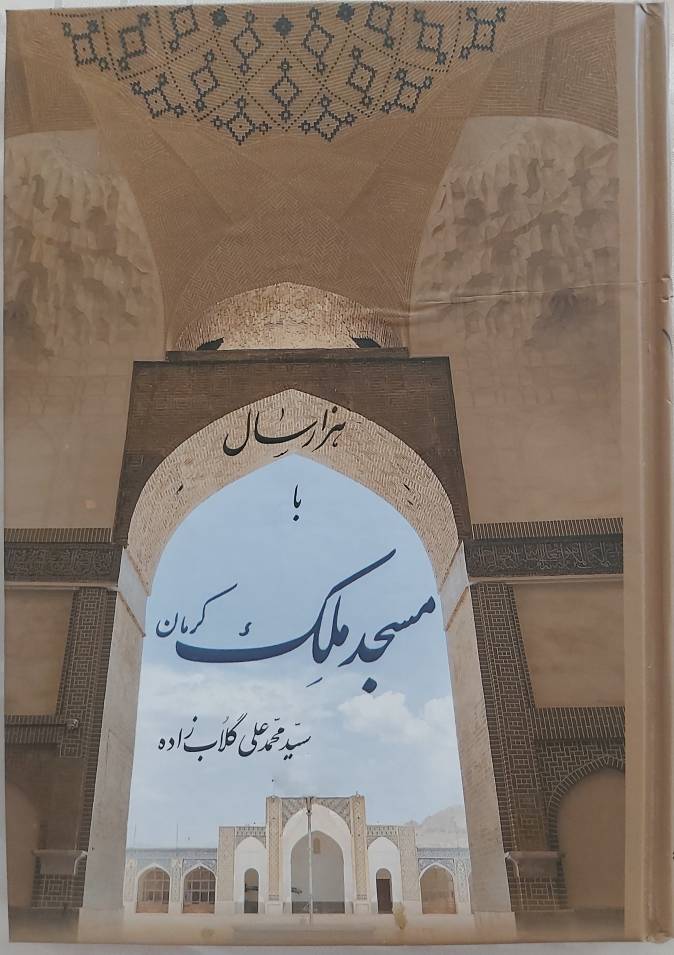 هزار سال
با
مسجد ملک کرمان
سیّد محمّد علی گلاب زاده